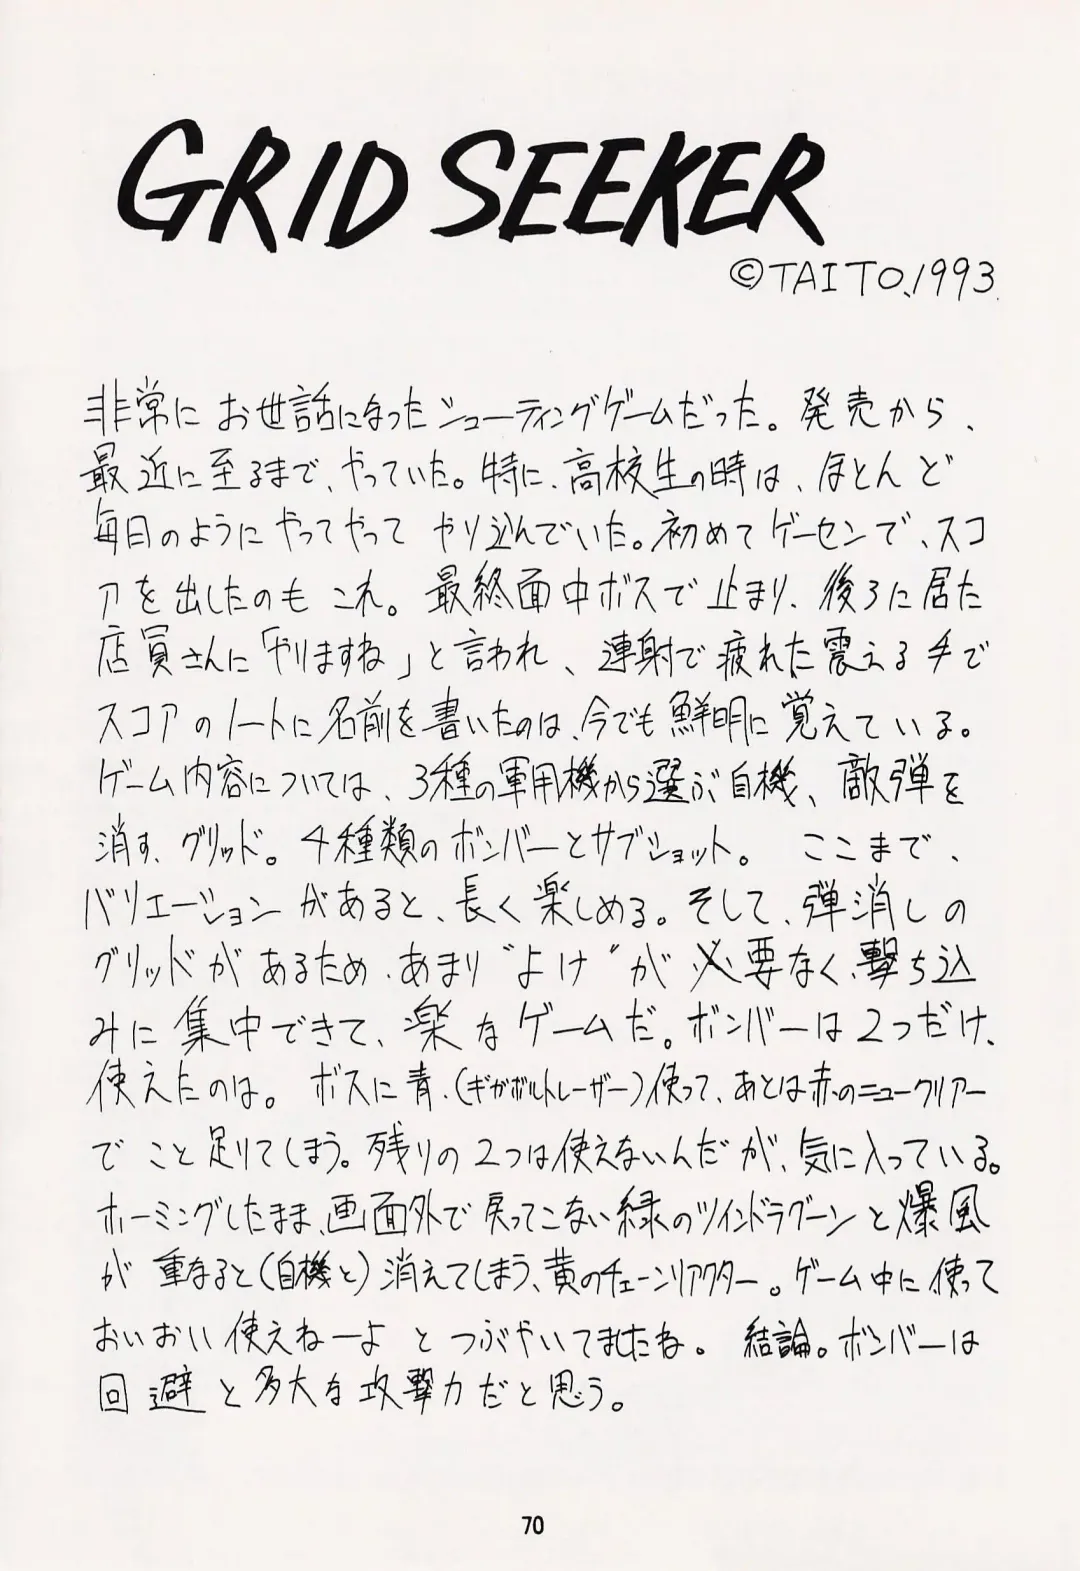 GRID SEEKER
©TAITO,1993.
非常に お世話になったシューティングゲームだった。発売から、
最近に至るまで、やっていた。特に、高校生の時は、ほとんど
毎日のようにやってやって やり込んでいた。初めてゲーセンで、スコ
アを出したのもこれ。最終面中ボスで止まり、後ろに居た
店員さんに「やりますね」と言われ、連射で疲れた震える手で
スコアのノートに名前を書いたのは、今でも鮮明に覚えている。
ゲーム内容については、3種の軍用機から選ぶ自機、敵弾を
消す、グリッド。4種類のボンバーとサブショット。 ここまで、
バリエーションがあると、長く楽しめる。そして、弾消しの
グリッドがあるため、あまり“よけ”が必要なく、撃ち込
みに集中できて、楽なゲームだ。ボンバーは2つだけ、
使えたのは。 ボスに青、(ギガボルトレーザー)使って、あとは赤のニュークリアー
でこと足りてしまう。残りの2つは使えないんだが、気に入っている。
ホーミングしたまま、画面外で戻ってこない緑のツインドラグーンと爆風
が重なると(自機と)消えてしまう、黄のチェーンリアクター。ゲーム中に、使って
おいおい使えねーよ とつぶやいてましたね。 結論。ボンバーは
回避と多大な攻撃力だと思う。
70